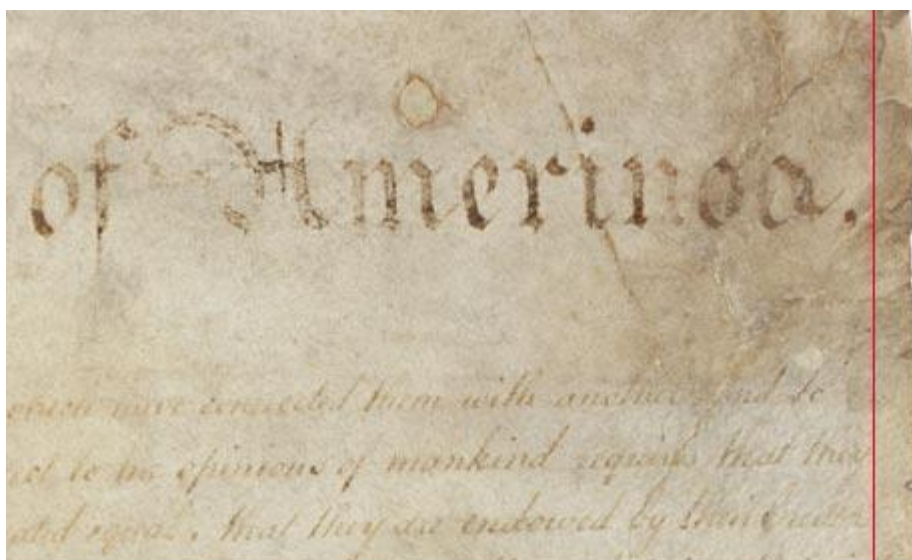 of Amerinoa.
have connected them with another and to
to the opinions of mankind requires that they
equal, that they are endowed by their Creator